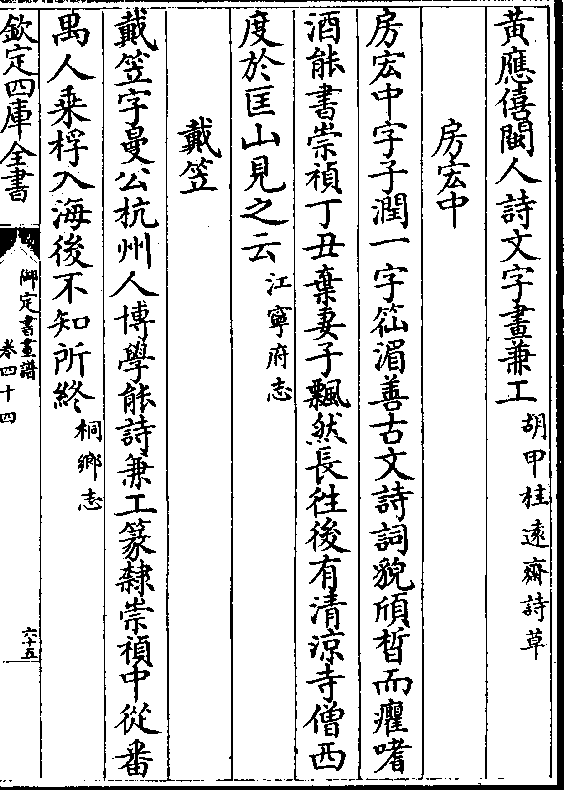 黄應僖閩人詩文字畫兼工胡甲桂遠齋詩草
房宏中
房宏中字子潤一字䇝湄善古文詩詞貌頎晳而癯嗜
酒能書崇禎丁丑棄妻子飄然長往後有清涼寺僧西
度於匡山見之云江寧府志
戴笠
戴笠字曼公杭州人博學能詩兼工篆隸崇禎中從番
禺人乘桴入海後不知所終桐鄉志
欽定四庫全書
御定書畫譜
卷四十四
六十五